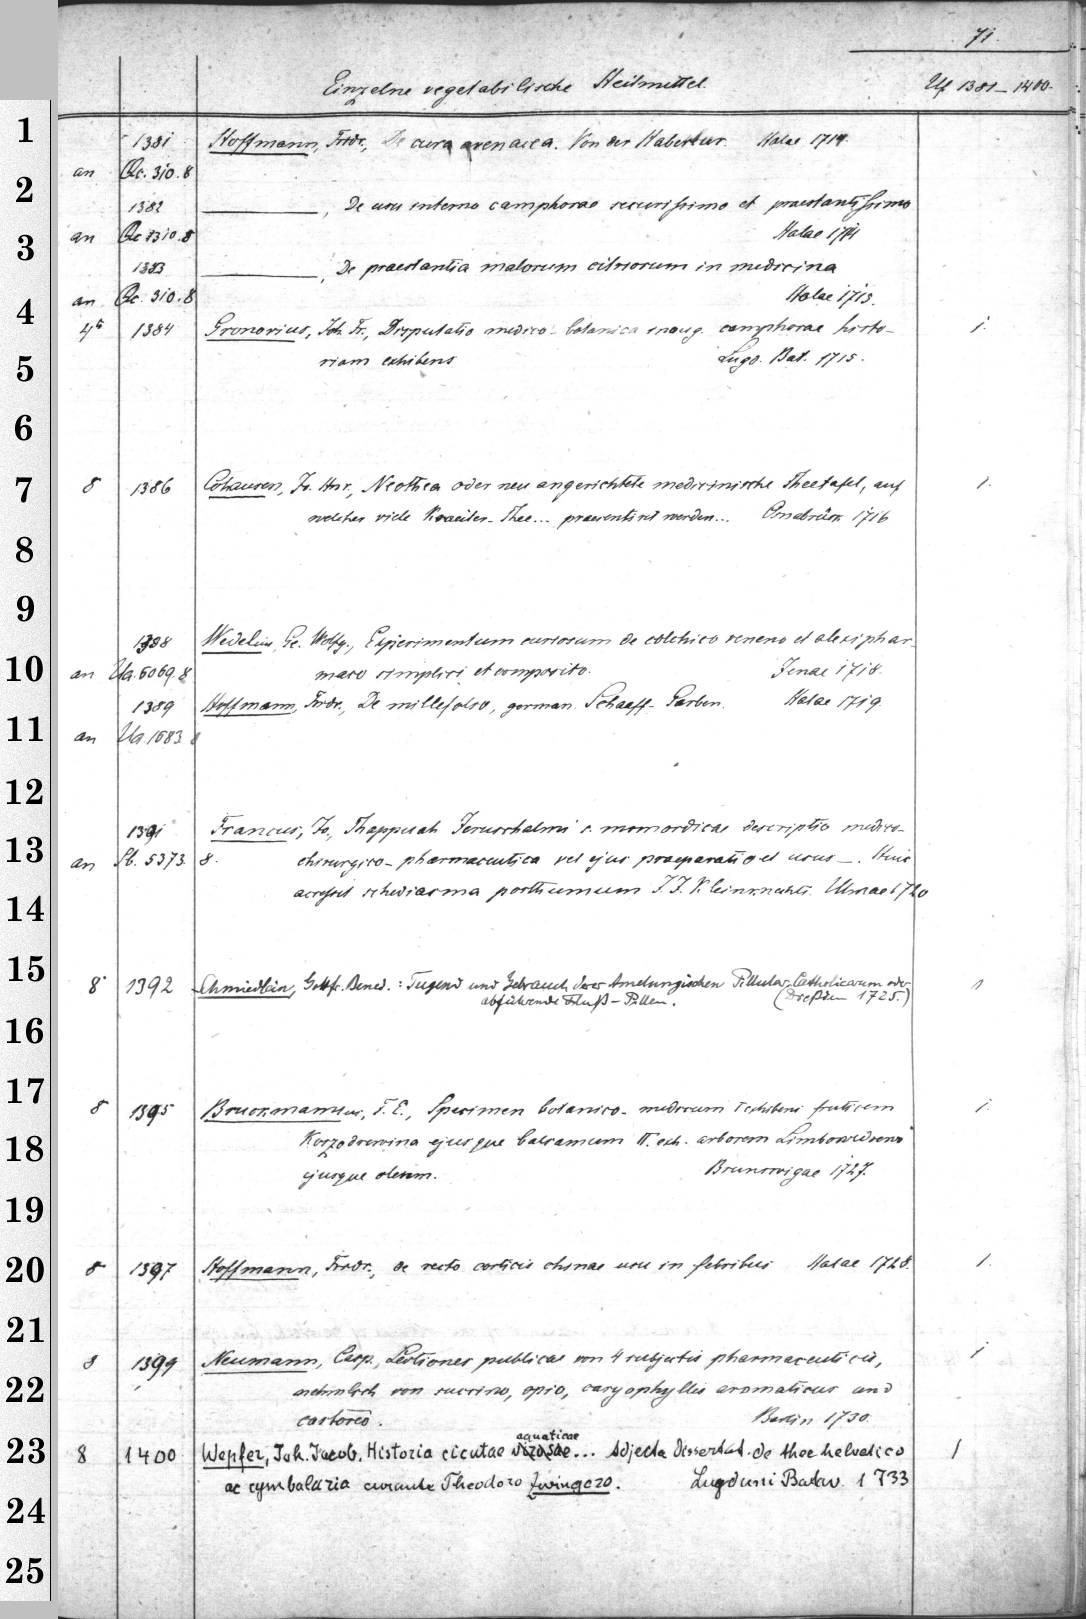 71.
Einzelne vegetabilische Heilmittel. Uf 1381-1400.
1
1381 Hoffmann, Fridr., De cura avenacea. Von der Haberkur. Halae 1714.
an Qc. 310.8
2
1382 ———, De usu interno camphorae securissimo et praestantissimo
3
an Qc 310.8 Halae 1714
1383 ———, De praestantia malorum citriorum in medicina
an Qc. 310.8 Halae 1715.
4
4° 1384 Gronovius, Joh. Fr., Disputatio medico-botanica inaug. camphorae histo- 1.
riam exhibens Lugd. Bat. 1715.
5
6
7
8 1386 Cohausen, Jo. Hnr., Neothea oder neu angerichtete medicinische Theetafel, auf 1.
welcher viele Kraeuter-Thee... praesentiret werden... Osnabrück 1716
8
9
1388 Wedelius, Ge. Wolfg., Experimentum curiosum de colchico veneno et alexiphar-
10
an Ua. 6069.8 maco simplici et composito. Jenae 1718.
1389 Hoffmann, Fridr., De millefolio, german. Schaaff-Garben. Halae 1719
11
an Ua 1683 8
12
1391 Francus, Jo., Thappuah Jeruschalmi s. momordicae descriptio medico-
13
an 5373 8. chirurgico-pharmaceutica vel ejus praeparatio et usus —. Huic
accessit schediasma posthumum J. J. Kleinknechti. Ulmae 1720
14
15
8° 1392 Schmiedlein, Gottfr. Bened.: Tugend und Gebrauch derer Amelungischen Pillular. Catholicarum oder 1
abführende Fluß-Pillen. (Dreßden 1725.)
16
17
8 1395 Bruckmannus, F. E., Specimen botanico-medicum I exhibens fruticem 1.
18
Korzodrewina ejusque balsamum II. exh. arborem Limbowedrewo
ejusque oleum. Brunsvigae 1727.
19
20
8 1397 Hoffmann, Fridr., de recto corticis chinae usu in febribus Halae 1728. 1.
21
8 1399 Neumann, Casp., Lectiones publicae von 4 subjectis pharmaceuticis, 1
22
nehmlich von succino, opio, caryophyllis aromaticus und
castoreo. Berlin 1730.
aquaticae
23
8 1400 Wepfer, Joh. Jacob, Historia cicutae virosae... Adjecta Dissertat. de thee helvetico 1
ac cymbalaria curante Theodoro Zwingero. Lugduni Batav. 1733
24
25